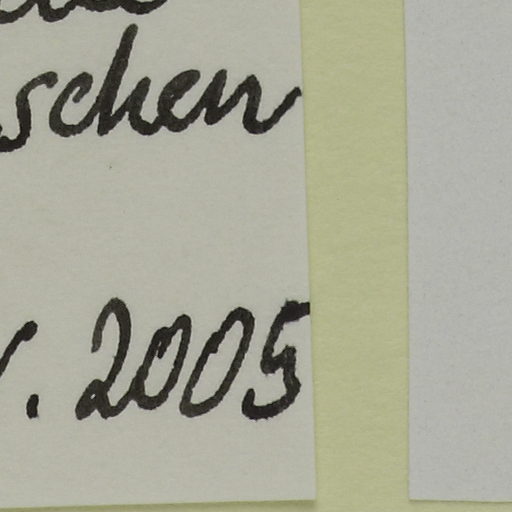 schen
. 2005